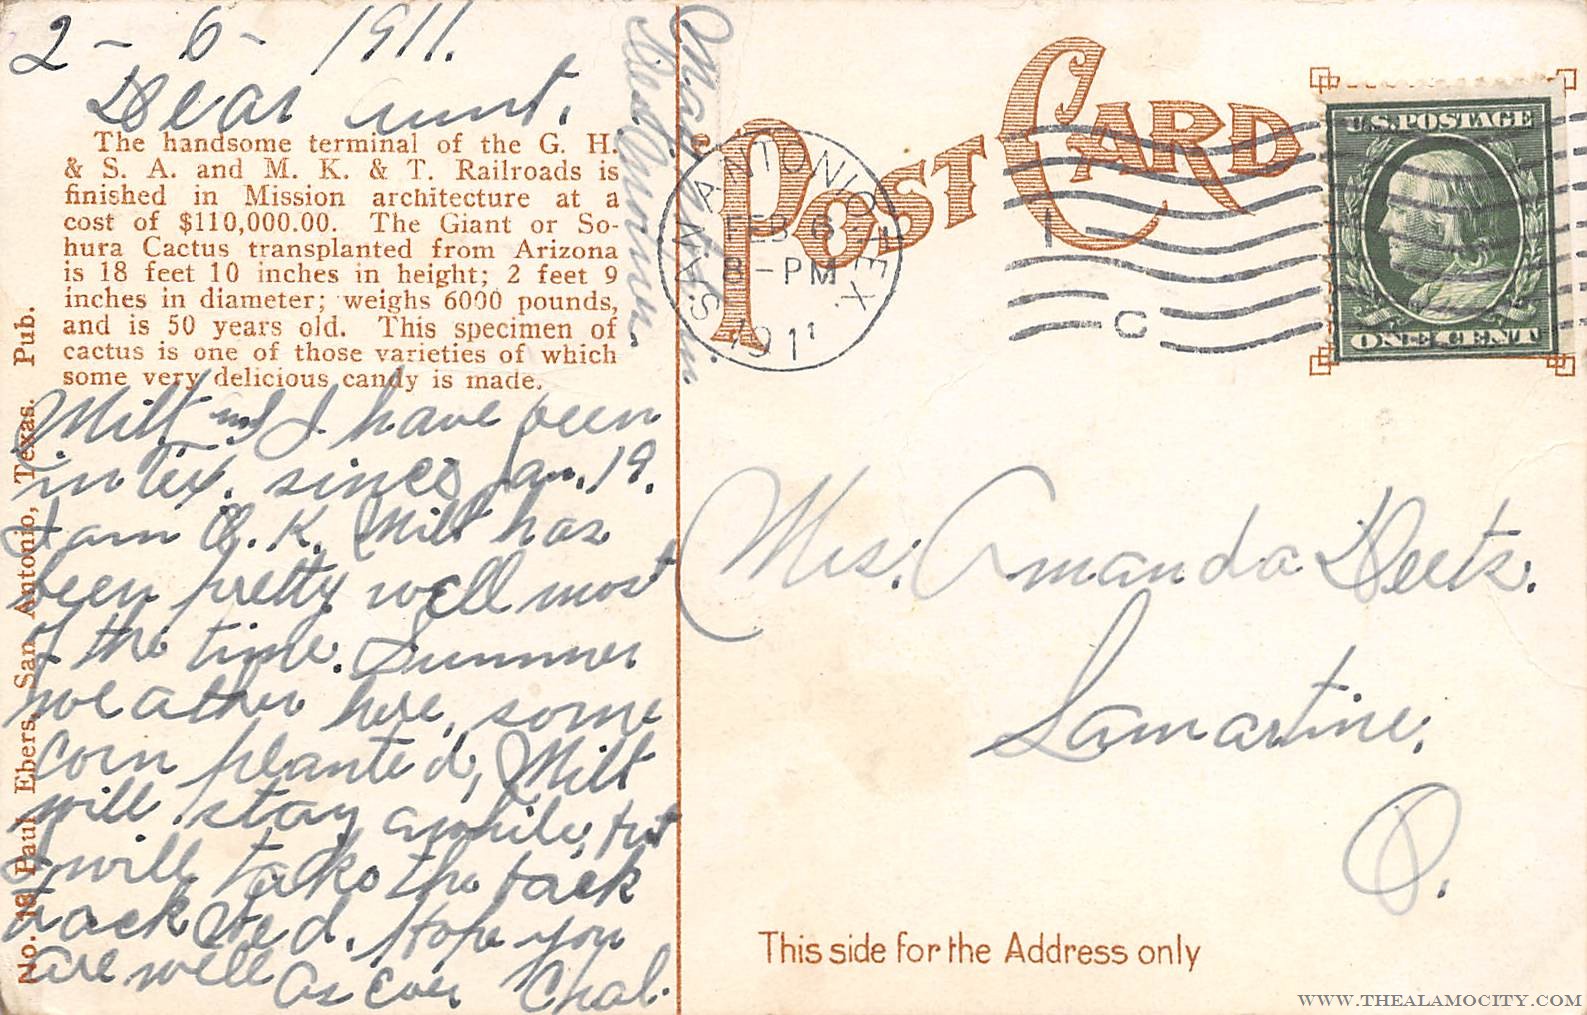 2-6-1911.
Dear Aunt.
The handsome terminal of the G. H.
& S. A. and M. K. & T. Railroads is
finished in Mission architecture at a
cost of $110,000.00. The Giant or So-
hura Cactus transplanted from Arizona
is 18 feet 10 inches in height; 2 feet 9
inches in diameter; weighs 6000 pounds,
and is 50 years old. This specimen of
cactus is one of those varieties of which
some very delicious candy is made.
Milt and I have been
in Tex. since Jan. 19.
I am O.K. Milt has
been pretty well most
of the time. Summer
weather here, some
corn planted, Milt
will stay awhile, but
I will take the back
track Wed. Hope you
are well as ever Chal.
No. 18 Paul Ebers, San Antonio, Texas. Pub.
POST CARD
SAN ANTONIO, TEX.
FEB 6
8-PM
1911
1
C
U.S. POSTAGE
ONE CENT
Mrs. Amanda Deetz.
Lamartine,
O.
This side for the Address only
WWW.THEALAMOCITY.COM